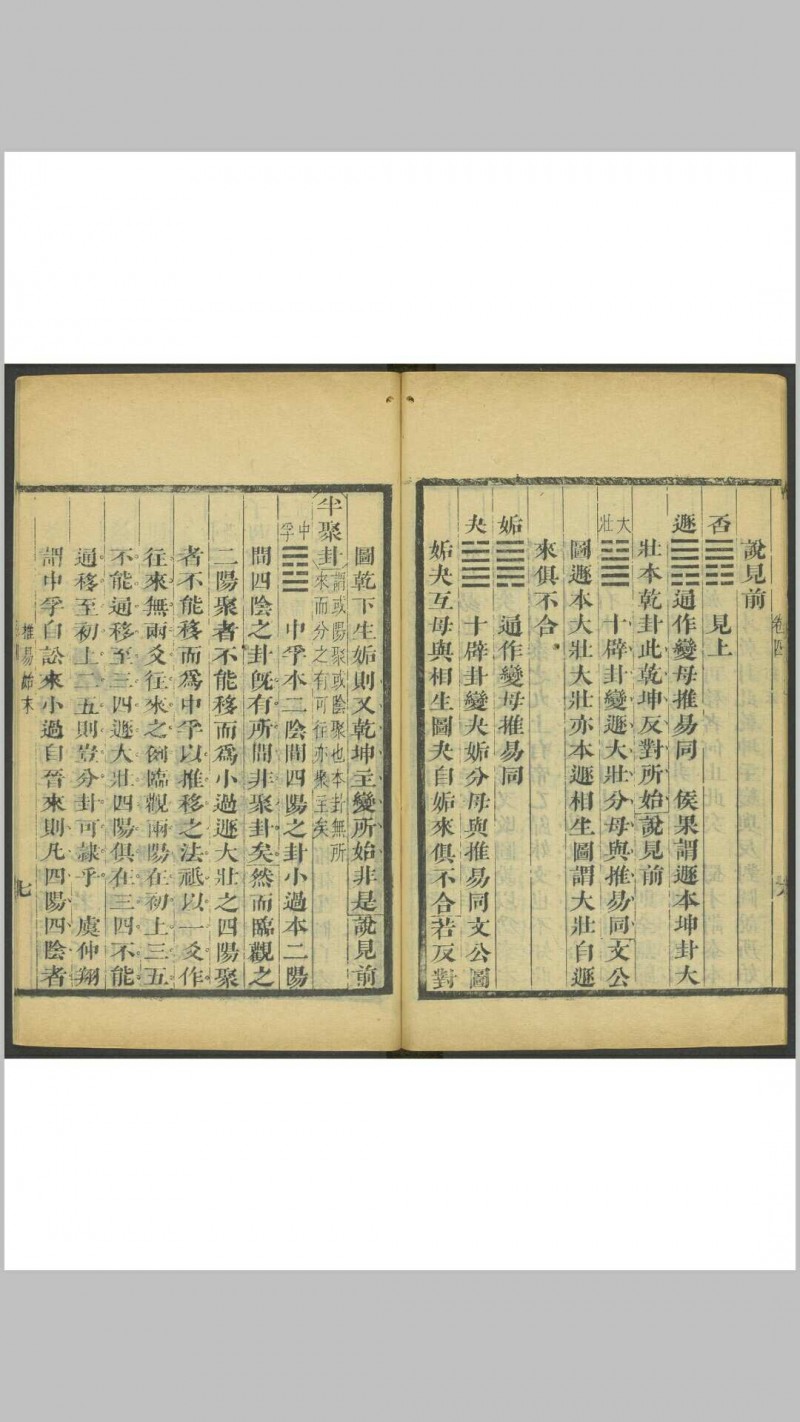 卷四
六
說見前
否 見上
遯 通作變母推易同 侯果謂遯本坤卦大
壯本乾卦此乾坤反對所始說見前
大壯 十辟卦變遯大壯分母與推易同文公
圖遯本大壯大壯亦本遯相生圖謂大壯自遯
來俱不合
姤 通作變母推易同
夬 十辟卦變夬姤分母與推易同文公圖
姤夬互母與相生圖夬自姤來俱不合若反對
圖乾下生姤則又乾坤主變所始非是說見前
半聚卦 謂或陽聚或陰聚也本卦無所
來而分之有可往亦聚主矣
中孚 中孚本二陰間四陽之卦小過本二陽
間四陰之卦旣有所間非聚卦矣然而臨觀之
二陽聚者不能移而爲小過遯大壯之四陽聚
者不能移而爲中孚以推移之法祗以一爻作
往來無兩爻往來之例臨觀兩陽在初上三五
不能通移至三四遯大壯四陽俱在三四不能
通移至初上二五則豈分卦可隷乎 虞仲翔
謂中孚自訟來小過自晉來則凡四陽四陰者
推易始末
七